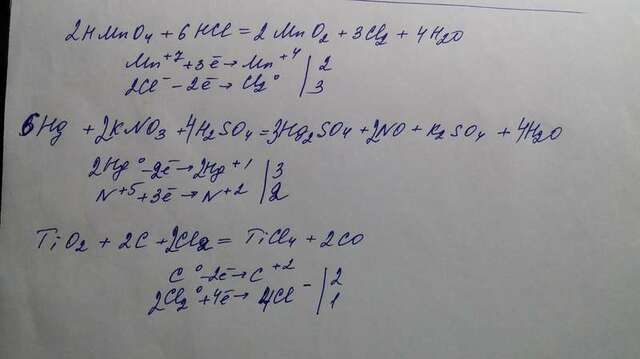 2HMnO₄ + 6HCl = 2MnO₂ + 3Cl₂ + 4H₂O
Mn⁺⁷ + 3ē → Mn⁺⁴ | 2
2Cl⁻ – 2ē → Cl₂⁰ | 3
6Hg + 2KNO₃ + 4H₂SO₄ = 3Hg₂SO₄ + 2NO + K₂SO₄ + 4H₂O
2Hg⁰ – 2ē → 2Hg⁺¹ | 3
N⁺⁵ + 3ē → N⁺² | 2
TiO₂ + 2C + 2Cl₂ = TiCl₄ + 2CO
C⁰ – 2ē → C⁺² | 2
2Cl₂⁰ + 4ē → 4Cl⁻ | 1